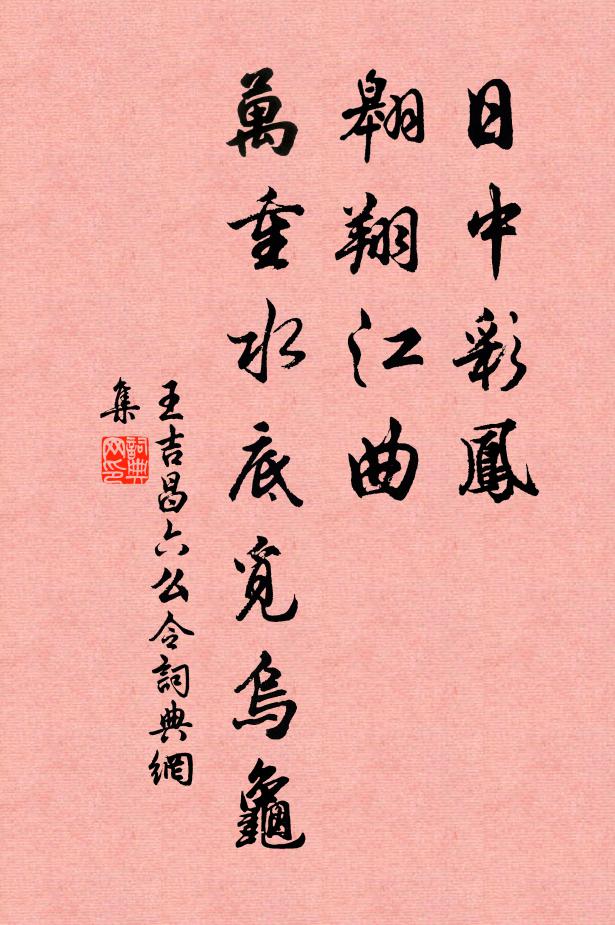 日中彩鳳
翱翔江曲
萬重水底覓烏龜
王吉昌六么令詞典網
集
詞典網印